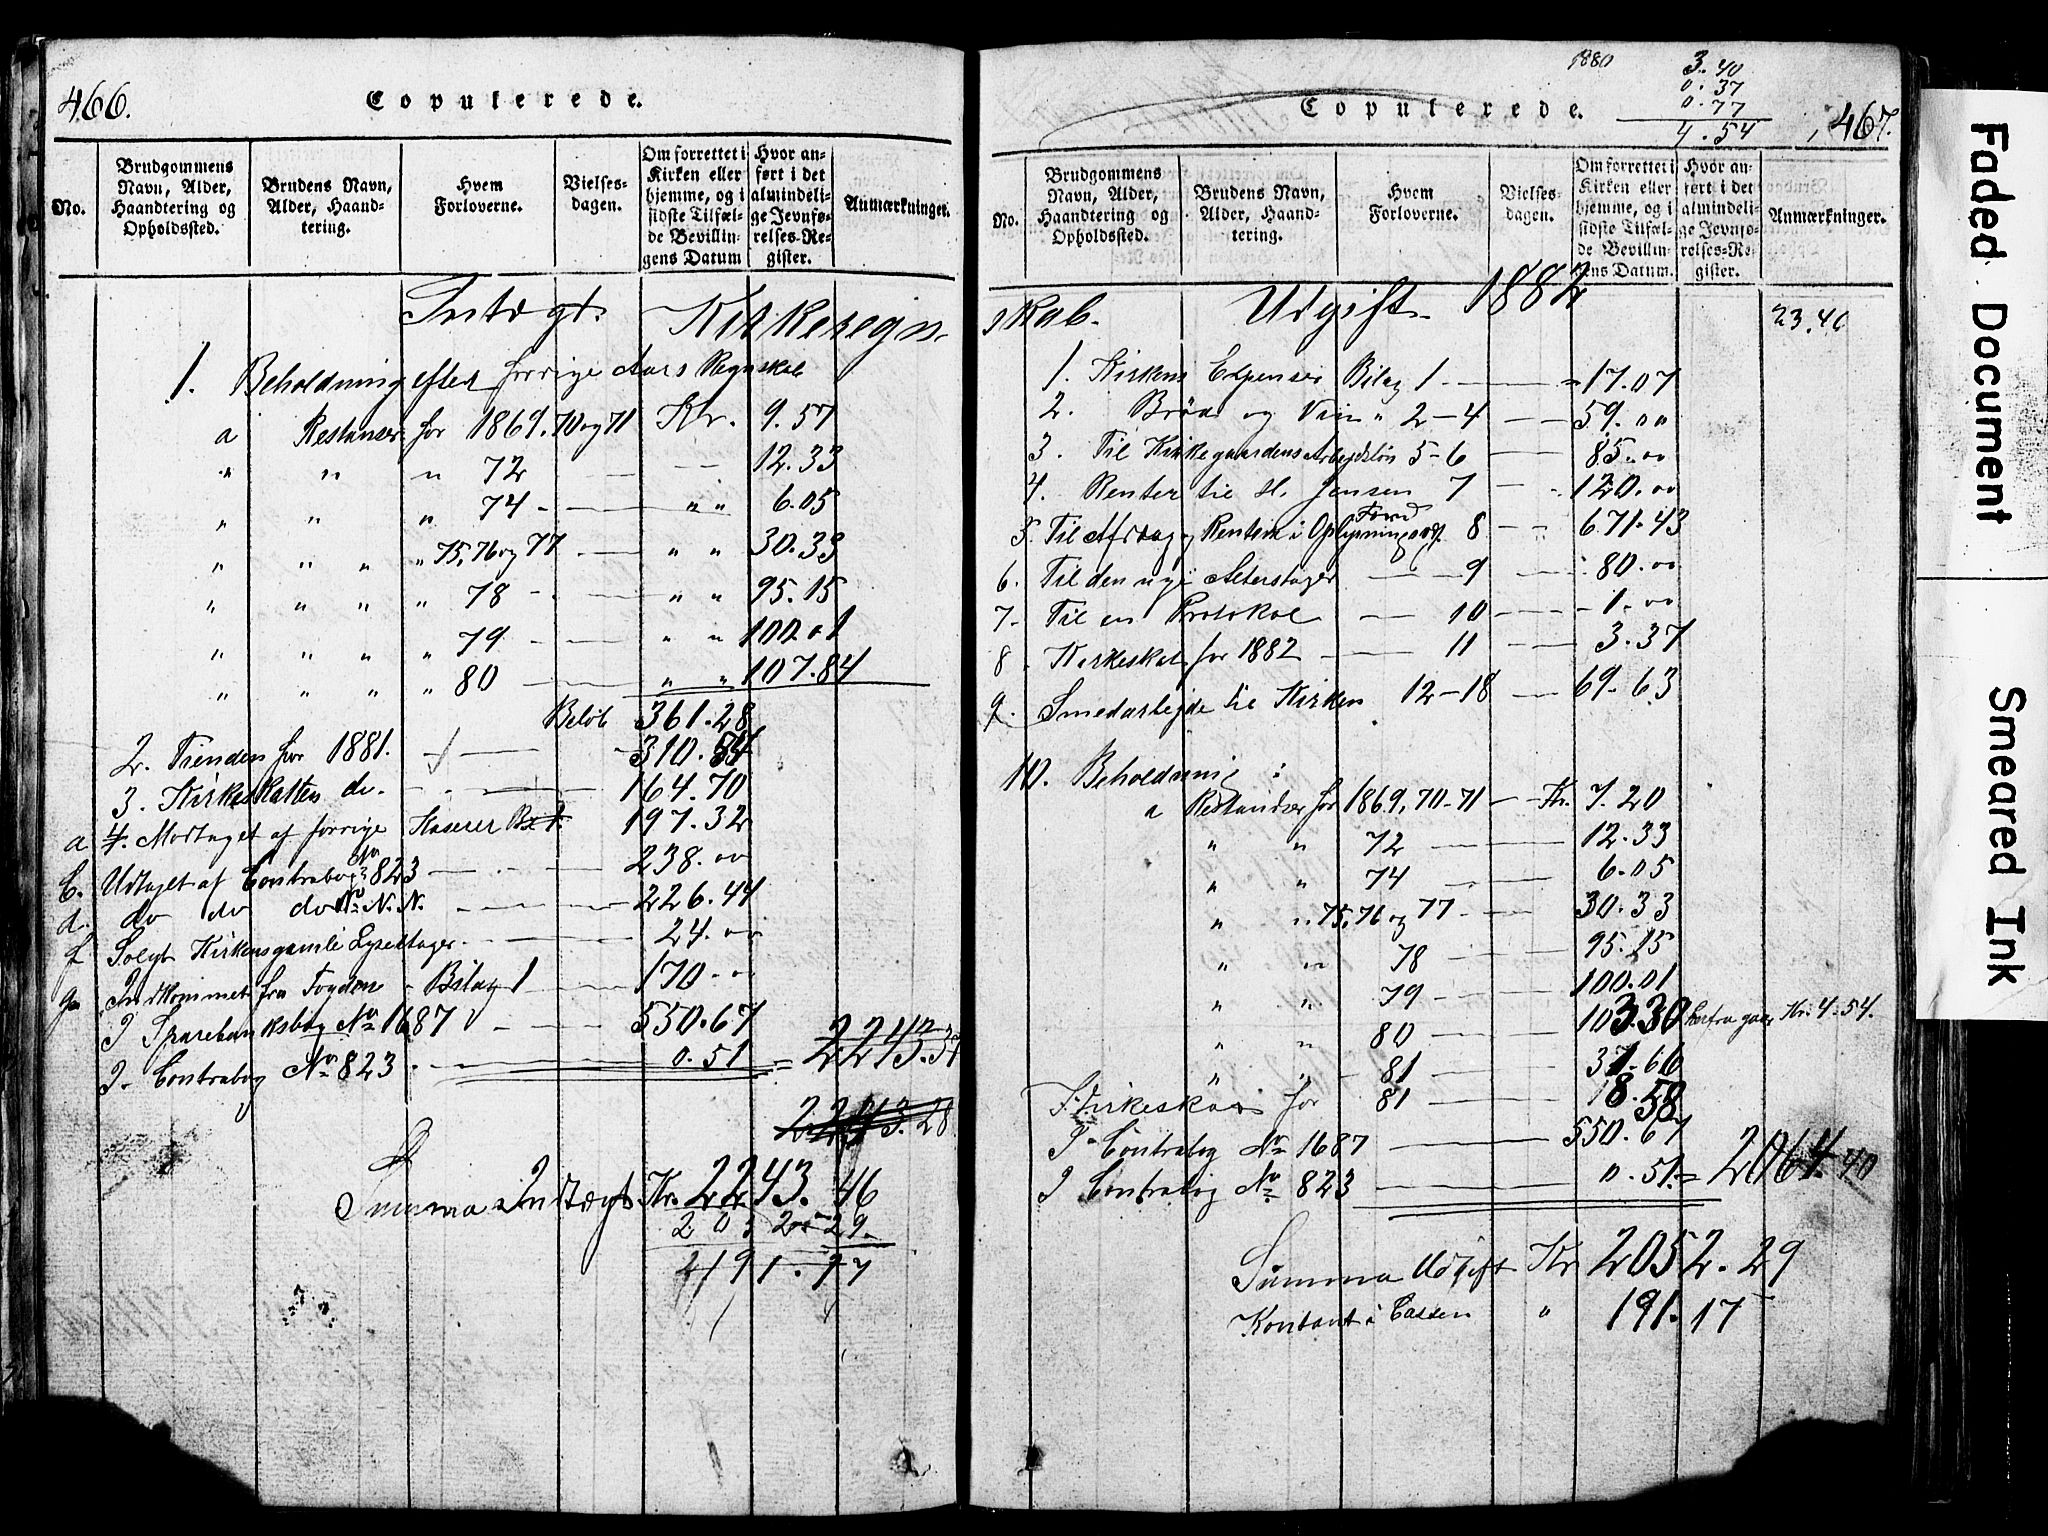 466.
Copulerede.
No.
Brudgommens Navn, Alder, Haandtering og Opholdssted.
Brudens Navn, Alder, Haandtering.
Hvem Forloverne.
Vielsesdagen.
Om forrettet i Kirken eller hjemme, og i sidste Tilfælde Bevillingens Datum
Hvor anført i det almindelige Jevnførelses-Register.
Anmærkninger.
Indtægt. Kirkeregn-
1. Beholdning efter forrige Aars Regnskab
a Restanser for 1869. 70 og 71 Kr. 9.57
" " " 72 — — 12.33
" " " 74 — — " " 6.05
" " " " 75, 76 og 77 — " " 30.33
" " " " 78 — — " " 95.15
" " " " 79 — — " " 100.01
" " " " 80 — — " " 107.84
Beløb 361.28
2. Tienden for 1881. — — 310.84
3. Kirkeskatten do. — — 164.70
a 4. Modtaget af forrige Kaserer 197.32
b. Udtaget af Contrabog No 823 — — 238.00
d. do do do No N.N. — — 226.44
f Solgt Kirkens gamle Lysestager — — 24.00
g. Indkommet fra Fogden Bilag 1 170.00
I Sparebanksbog No 1687 — — 550.67
I Contrabog No 823 — — 0.51 = 2243.37
2243.28
Summa Indtægt Kr. 2243.46
2052.29.
191.17
1880
3.40
0.37
0.77
4.54
Copulerede.
467.
No.
Brudgommens Navn, Alder, Haandtering og Opholdssted.
Brudens Navn, Alder, Haandtering.
Hvem Forloverne.
Vielsesdagen.
Om forrettet i Kirken eller hjemme, og i sidste Tilfælde Bevillingens Datum.
Hvor anført i det almindelige Jevnførelses-Register.
Anmærkninger.
skab. Udgift 1882
23.40
1. Kirkens Expenser Bilag 1 — — 17.07
2. Brød og Vin " 2-4 — 59.00
3. Til Kirkegaardens Arbeidsløn 5-6 — 85.00
4. Renter til H. Jensen 7 — 120.00
5. Til Afdrag og Renter i Oplysningsv. Fond 8 — 671.43
6. Til den nye Alterstager — 9 — 80.00
7. Til en Protokol — 10 — 1.00
8. Kirkeskat for 1882 — 11 — 3.37
9. Smedarbejde til Kirken 12-18 — 69.63
10. Beholdning :
a Restandser for 1869, 70-71 — Kr. 7.20
" " 72 — — 12.33
" " 74 — — 6.05
" " 75, 76 og 77 — 30.33
" " 78 — — 95.15
" " 79 — — 100.01
" " 80 — — 103.30 herfra gaar Kr. 4.54.
" " 81 — — 37.66
Kirkeskat for 81 — — 18.58
I Contrabog No 1687 — — 550.67
I Contrabog No 823 — — 0.51 = 2064.40
Summa Udgift Kr 2052.29
Kontant i Cassen " 191.17
Faded Document
Smeared Ink